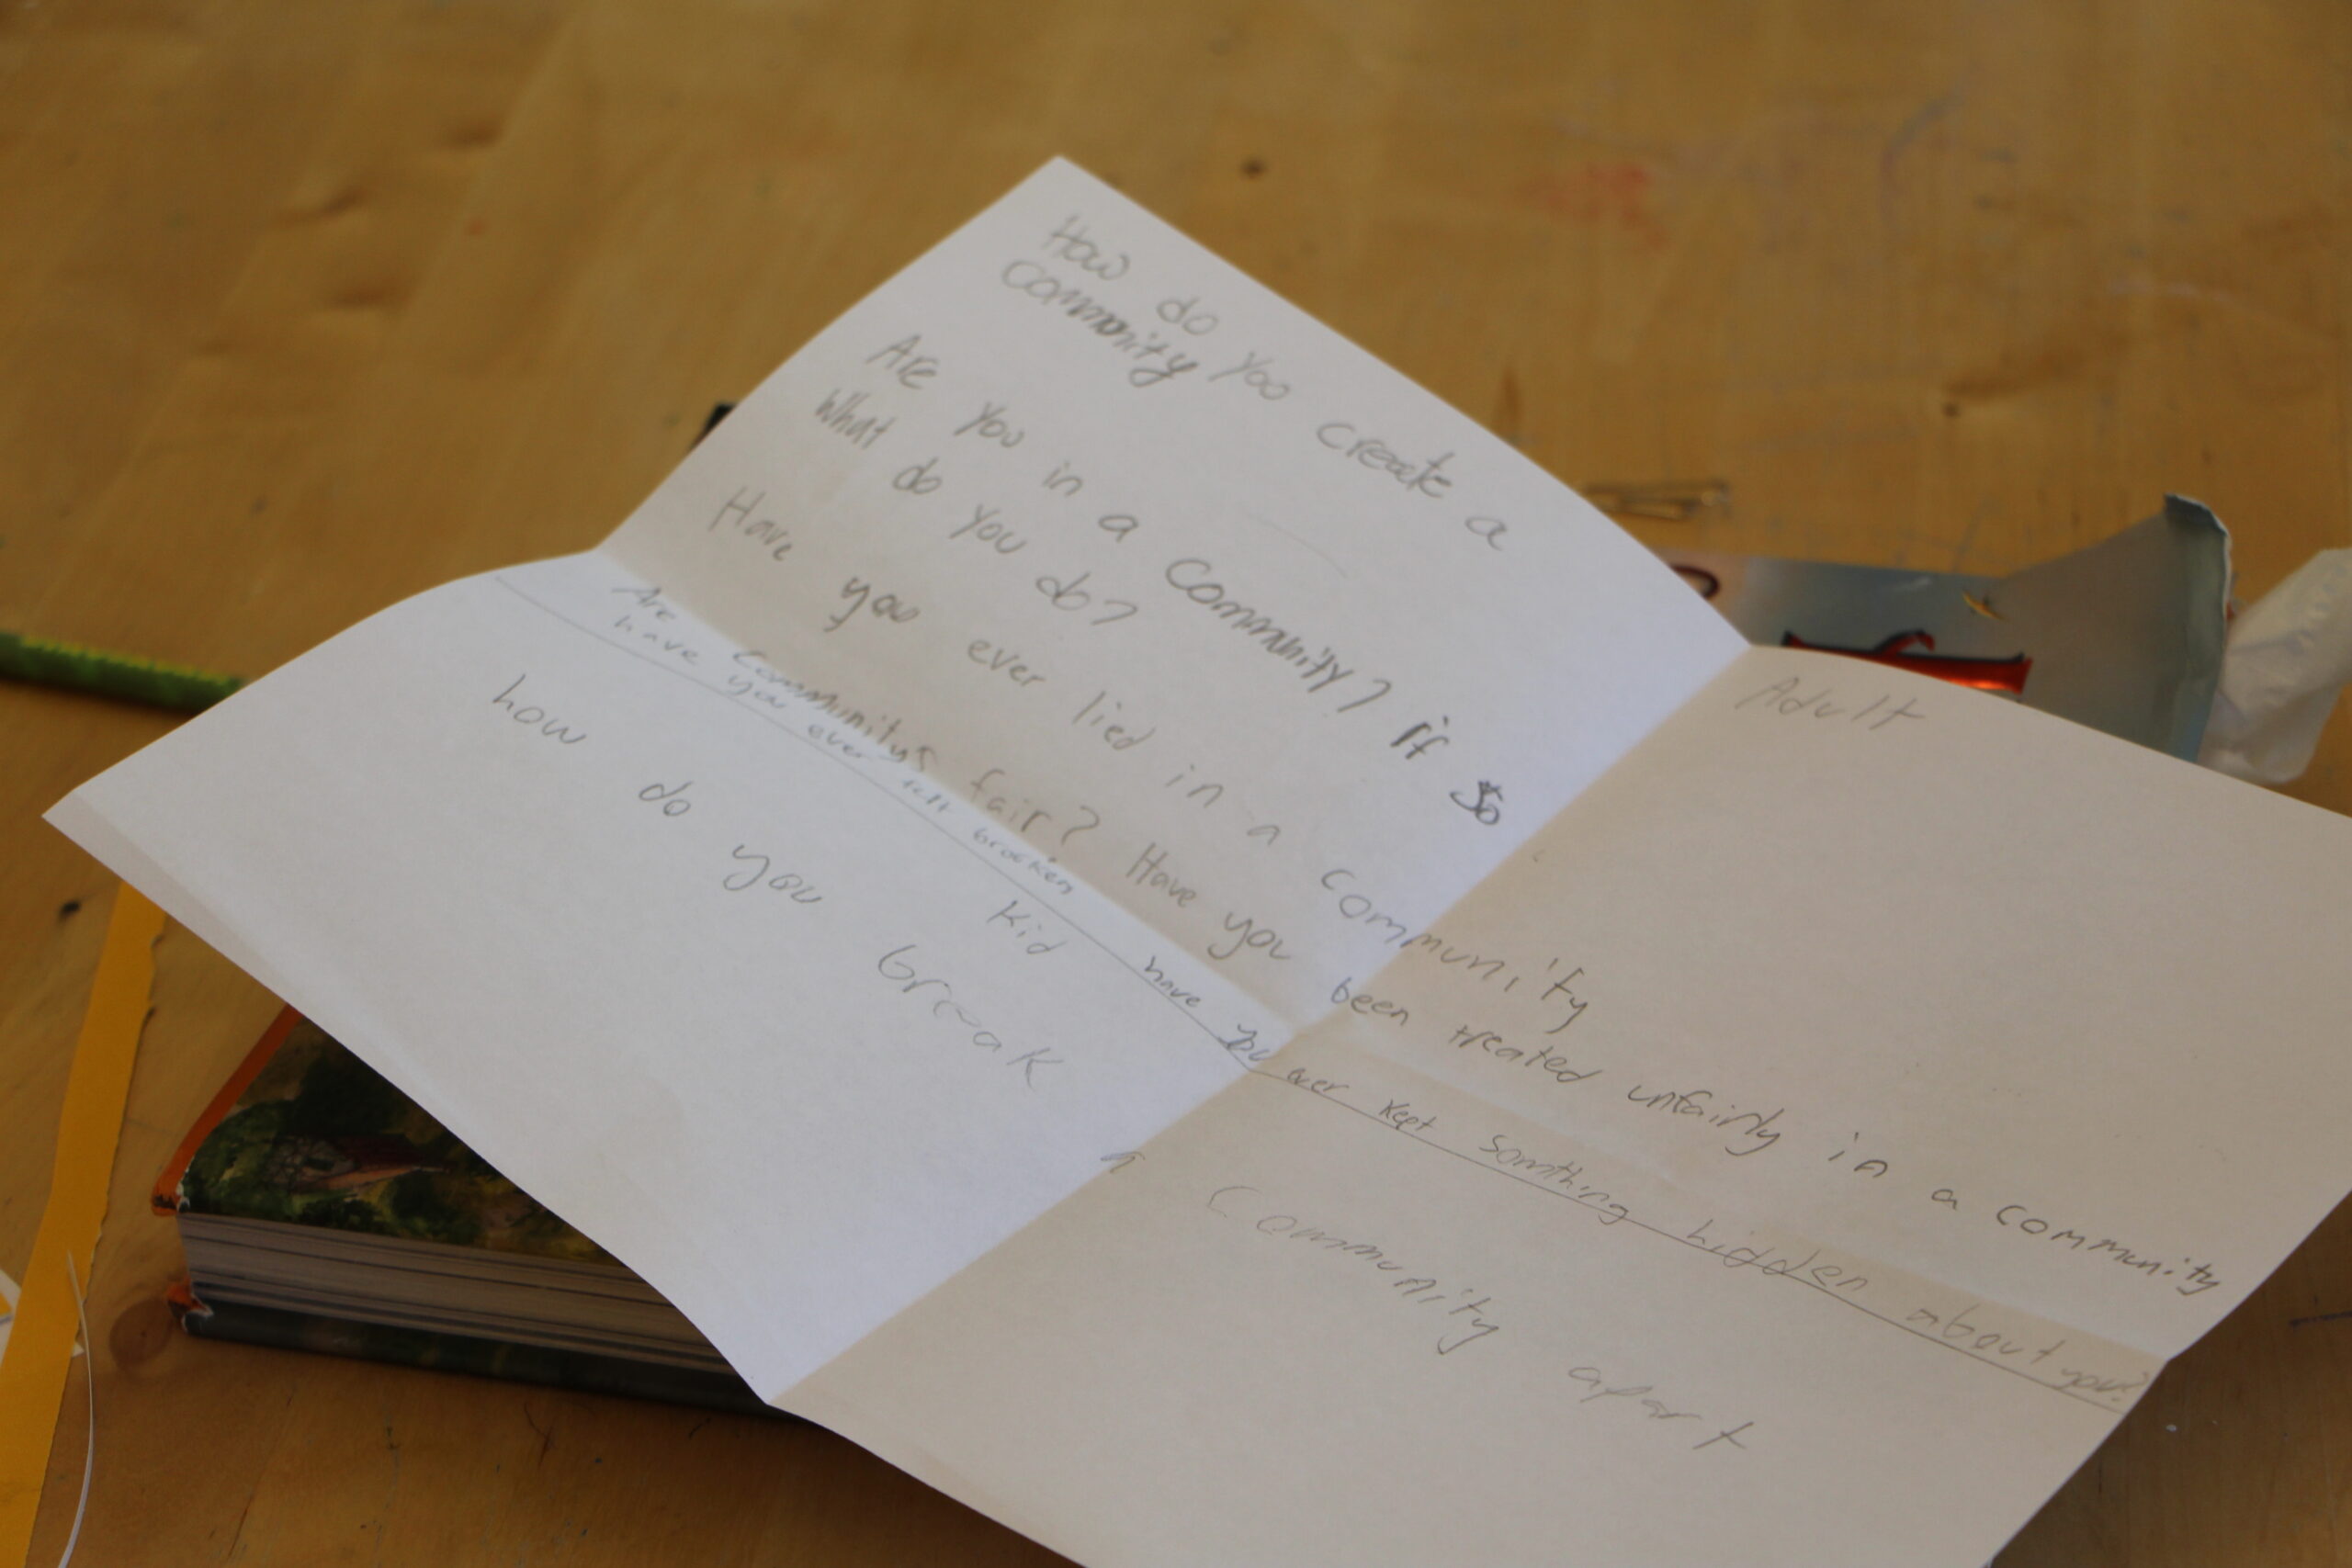 How do you create a
community
Adult
Are you in a community? if so
What do you do?
Have you ever lied in a community
Are community's fair? Have you been treated unfairly in a community
have you ever felt brocken
Kid have you ever kept somthing hidden about you?
how do you break
community apart